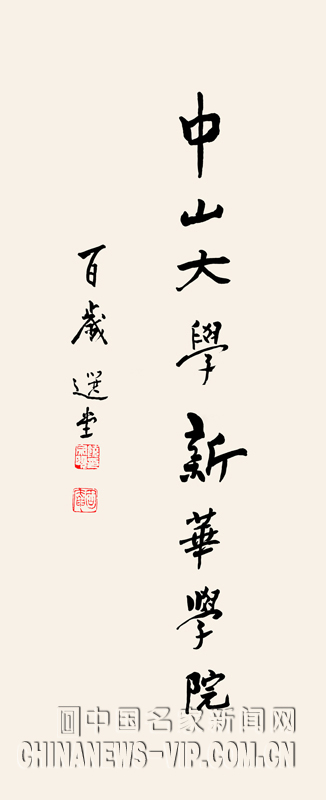 中山大學新華學院
百歲選堂
中国名家新闻网
CHINANEWS-VIP.COM.CN